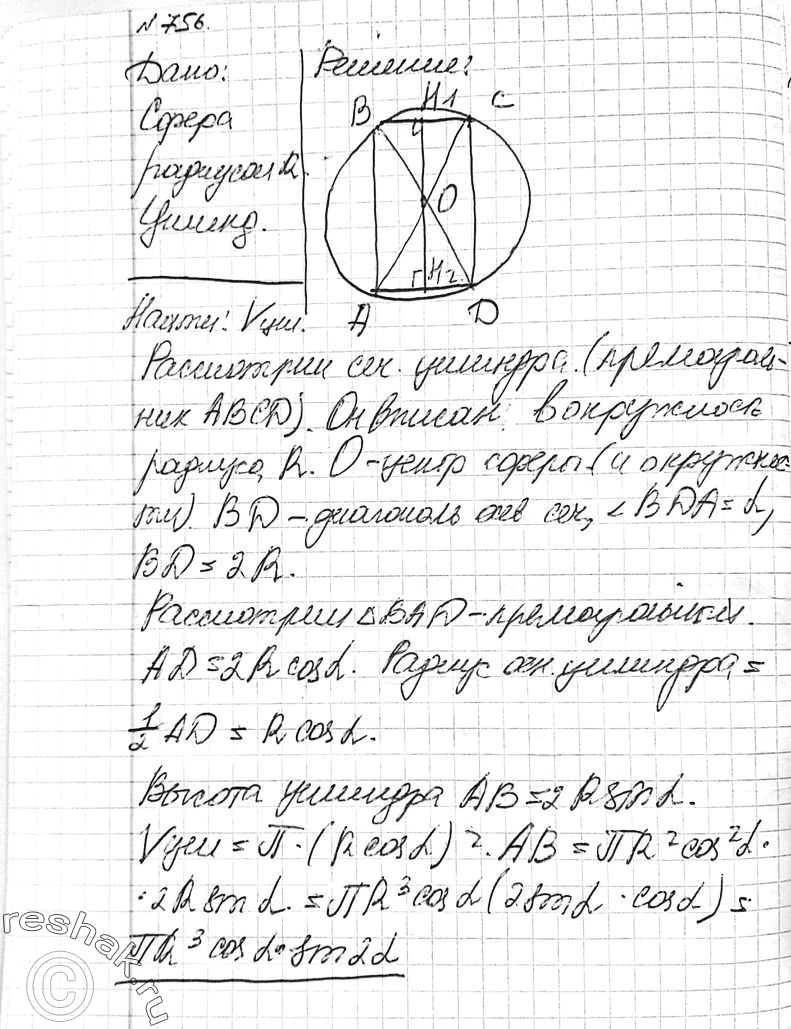 №756.
Дано: Решение:
Сфера
радиусом R.
Цилинд.
B H1 C
O
H2
A D
Найти: Vцил.
Рассмотрим сеч. цилиндра (прямоуголь-
ник ABCD). Он вписан в окружность
радиуса R. O-центр сферы (и окружнос-
ти). BD-диагональ осев сеч, ∠BDA=α,
BD=2R.
Рассмотрим △BAD-прямоугольный.
AD=2Rcosα. Радиус осн. цилиндра=
1/2 AD = R cosα.
Высота цилиндра AB=2Rsinα.
Vцил = π·(Rcosα)²·AB = πR²cos²α·
·2Rsinα = πR³cosα(2sinα·cosα) =
πR³cosα·sin2α
reshak.ru
©